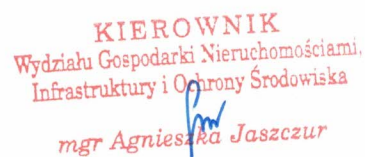 KIEROWNIK
Wydziału Gospodarki Nieruchomościami,
Infrastruktury i Ochrony Środowiska
mgr Agnieszka Jaszczur